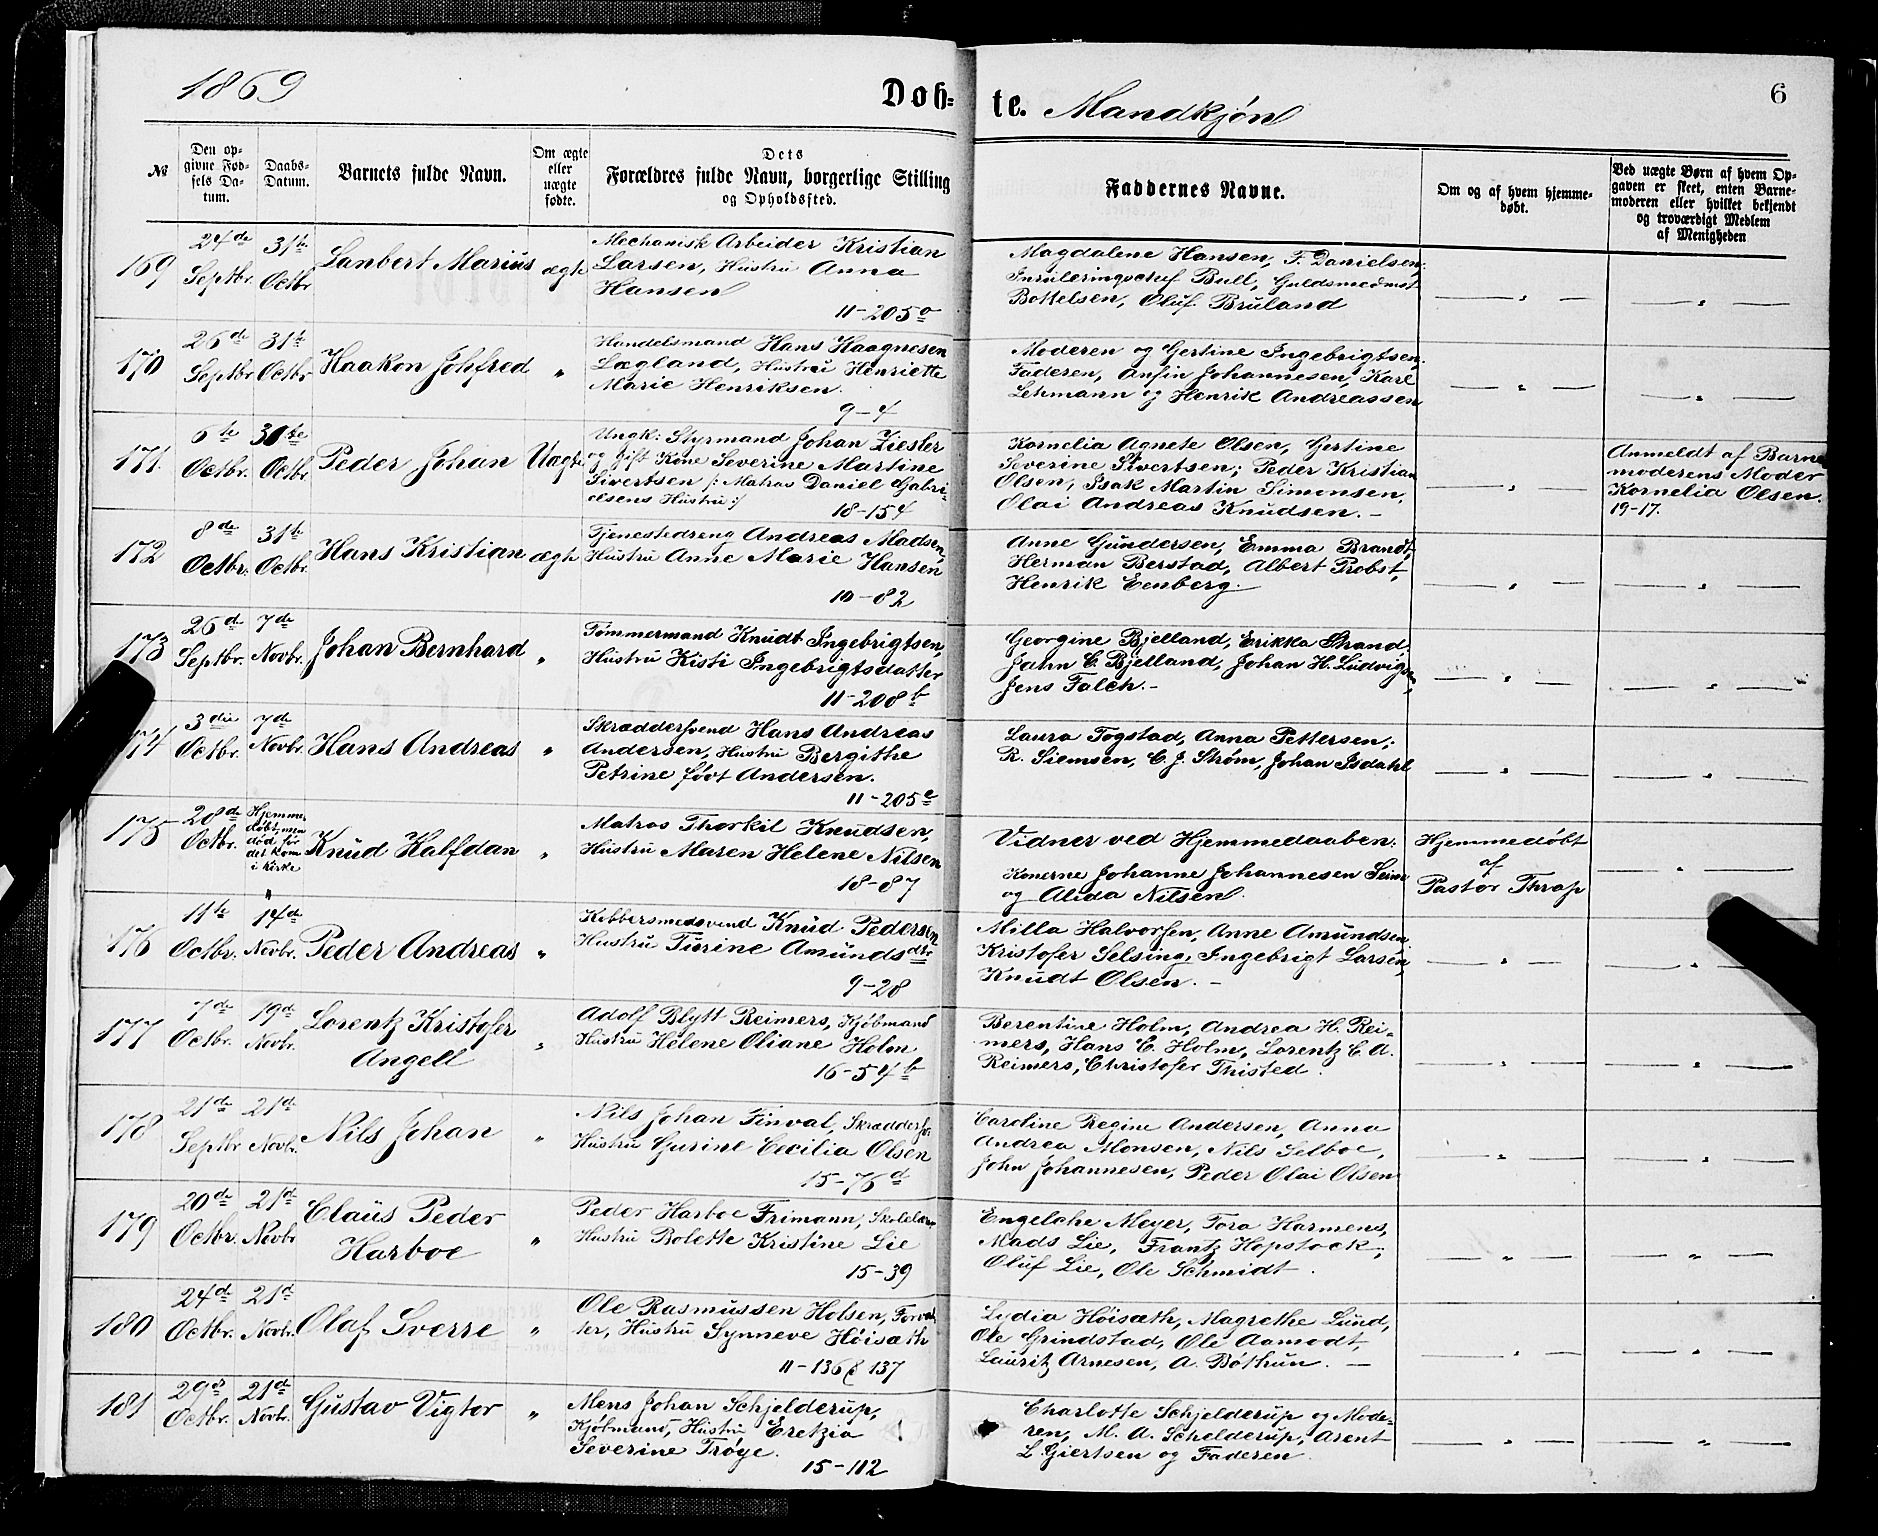 1869
Døb=
te. Mandkjøn
6
№
Den op-
givne Fød-
sels Da-
tum.
Daabs-
Datum.
Barnets fulde Navn.
Om ægte
eller
uægte
fødte.
Dets
Forældres fulde Navn, borgerlige Stilling
og Opholdssted.
Faddernes Navne.
Om og af hvem hjemme-
døbt.
Ved uægte Børn af hvem Op-
gaven er skeet, enten Barne-
moderen eller hvilket bekjendt
og troværdigt Medlem
af Menigheden
169
24de
Septbr.
31te
Octbr
Lambert Marius
ægte
Mechanisk Arbeider Kristian
Larsen, Hustru Anna
Hansen
11-205 a
Magdalene Hansen, F. Danielsen,
Bull, Guldsmedmst
Bottelsen, Oluf Bruland
170
26de
Septbr
31te
Octbr
Haakon Johfred
"
Handelsmand Hans Haagnesen
Lægland, Hustru Henriette
Marie Henriksen.
9-4
Moderen og Gertine Ingebrigtsen,
Faderen, Anfin Johannesen, Karl
Lehmann og Henrik Andreassen
171.
6te
Octbr.
30te
Octbr
Peder Johan
Uægte
Ungk: Styrmand Johan Ziesler
og Gift Kone Severine Martine
Sivertsen /: Matros Daniel Gabri-
elsens Hustru :/
18-154
Kornelia Agnete Olsen, Gertine
Severine Sivertsen; Peder Kristian
Olsen, Isak Martin Simonsen,
Olai Andreas Knudsen. -
Anmeldt af Barne
moderens Moder
Kornelia Olsen.
19-17.
172
8de
Octbr.
31te
Octbr.
Hans Kristian
ægte
Tjenestedreng Andreas Madsen,
Hustru Anne Marie Hansen
10-82
Anne Gundersen, Emma Brandt,
Herman Berstad, Albert Probst,
Henrik Eenberg.
173
26de
Septbr.
7de
Novbr.
Johan Bernhard
"
Tømmermand Knudt Ingebrigtsen,
Hustru Kisti Ingebrigtsdatter
11-208 b
Georgine Bjelland, Erikka Strand,
Jahn E. Bjelland, Johan H. Ludvigsen,
Jens Falch. -
174
3die
Octbr.
7de
Novbr.
Hans Andreas
"
Skræddersvend Hans Andreas
Andersen, Hustru Bergithe
Petrine født Andersen.
11-205 e
Laura Togstad, Anna Pettersen,
R. Siemsen, C. J. Strøm, Johan Isdahl
175
28de
Octbr.
Hjemme
døbt, men
død før
det kom
i Kirke
Knud Halfdan
"
Matros Thorkil Knudsen,
Hustru Maren Helene Nilsen
18-87
Vidner ved Hjemmedaaben:
Konerne Johanne Johannesen Seim
og Alida Nilsen.
Hjemmedøbt
af
Pastor Thrap
176
11te
Octbr.
14de
Novbr.
Peder Andreas
"
Kobbersmedsvend Knud Pedersen
Hustru Turine Amundsdtr
9-28
Milla Halvorsen, Anne Amundsen,
Kristofer Selsing, Ingebrigt Larsen,
Knudt Olsen. -
177
7de
Octbr.
19de
Novbr.
Lorentz Kristofer
Angell
"
Adolf Blytt Reimers, Kjøbmand
Hustru Helene Oliane Holm
16-54 b
Berentine Holm, Andrea H. Rei-
mers, Hans C. Holm, Lorentz C. A.
Reimers, Christofer Thisted.
178
21de
Septbr
21de
Novbr.
Nils Johan
"
Nils Johan Finval, Skræddersv
Hustru Gurine Cecilia Olsen
15-76 d
Caroline Regine Andersen, Anna
Andrea Monsen, Nils Selboe,
John Johannesen, Peder Olai Olsen
179
20de
Octbr.
21de
Novbr
Claus Peder
Harboe
"
Peder Harboe Frimann, Skolelærer
Hustru Bolette Kristine Lie
15-39
Engelche Meyer, Tora Harmens,
Mads Lie, Frantz Hopstock,
Oluf Lie, Ole Schmidt.
180
24de
Octbr.
21de
Novbr.
Olaf Sverre
"
Ole Rasmussen Holsen, Forval
ter, Hustru Synneve Høisæth
11-136 & 137
Lydia Høisæth, Magrethe Lund,
Ole Grindstad, Ole Aamodt,
Lauritz Arnesen, A. Bøthun. -
181
29de
Octbr.
21de
Novbr.
Gustav Vigtor
"
Mens Johan Schjelderup,
Kjøbmand, Hustru Eretzia
Severine Trøye.
15-112
Charlotte Schjelderup og Mode-
ren, M. A. Schelderup, Arent
L. Giertsen og Faderen.